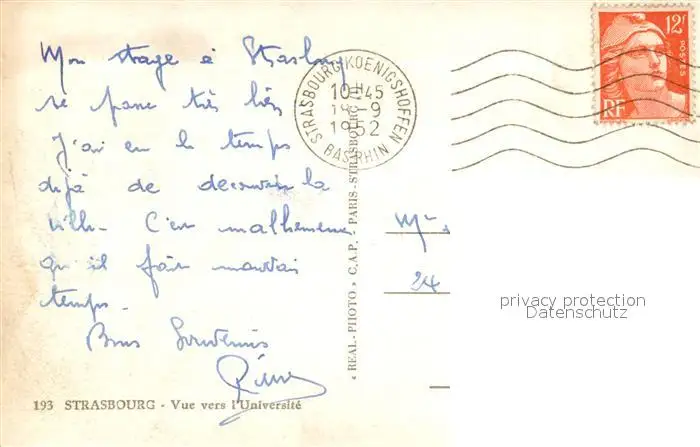 Mon stage à Strasbourg
se passe très bien
J'ai eu le temps
déjà de decouvrir la
ville. C'est malheureux
qu'il fait mauvais
temps.
Bons Souvenirs
193 STRASBOURG - Vue vers l'Université
STRASBOURG KOENIGSHOFFEN
10H45
18-9
1952
BAS RHIN
« REAL-PHOTO » C.A.P. PARIS-STRASBOURG
12F
POSTES
RF
24
privacy protection
Datenschutz